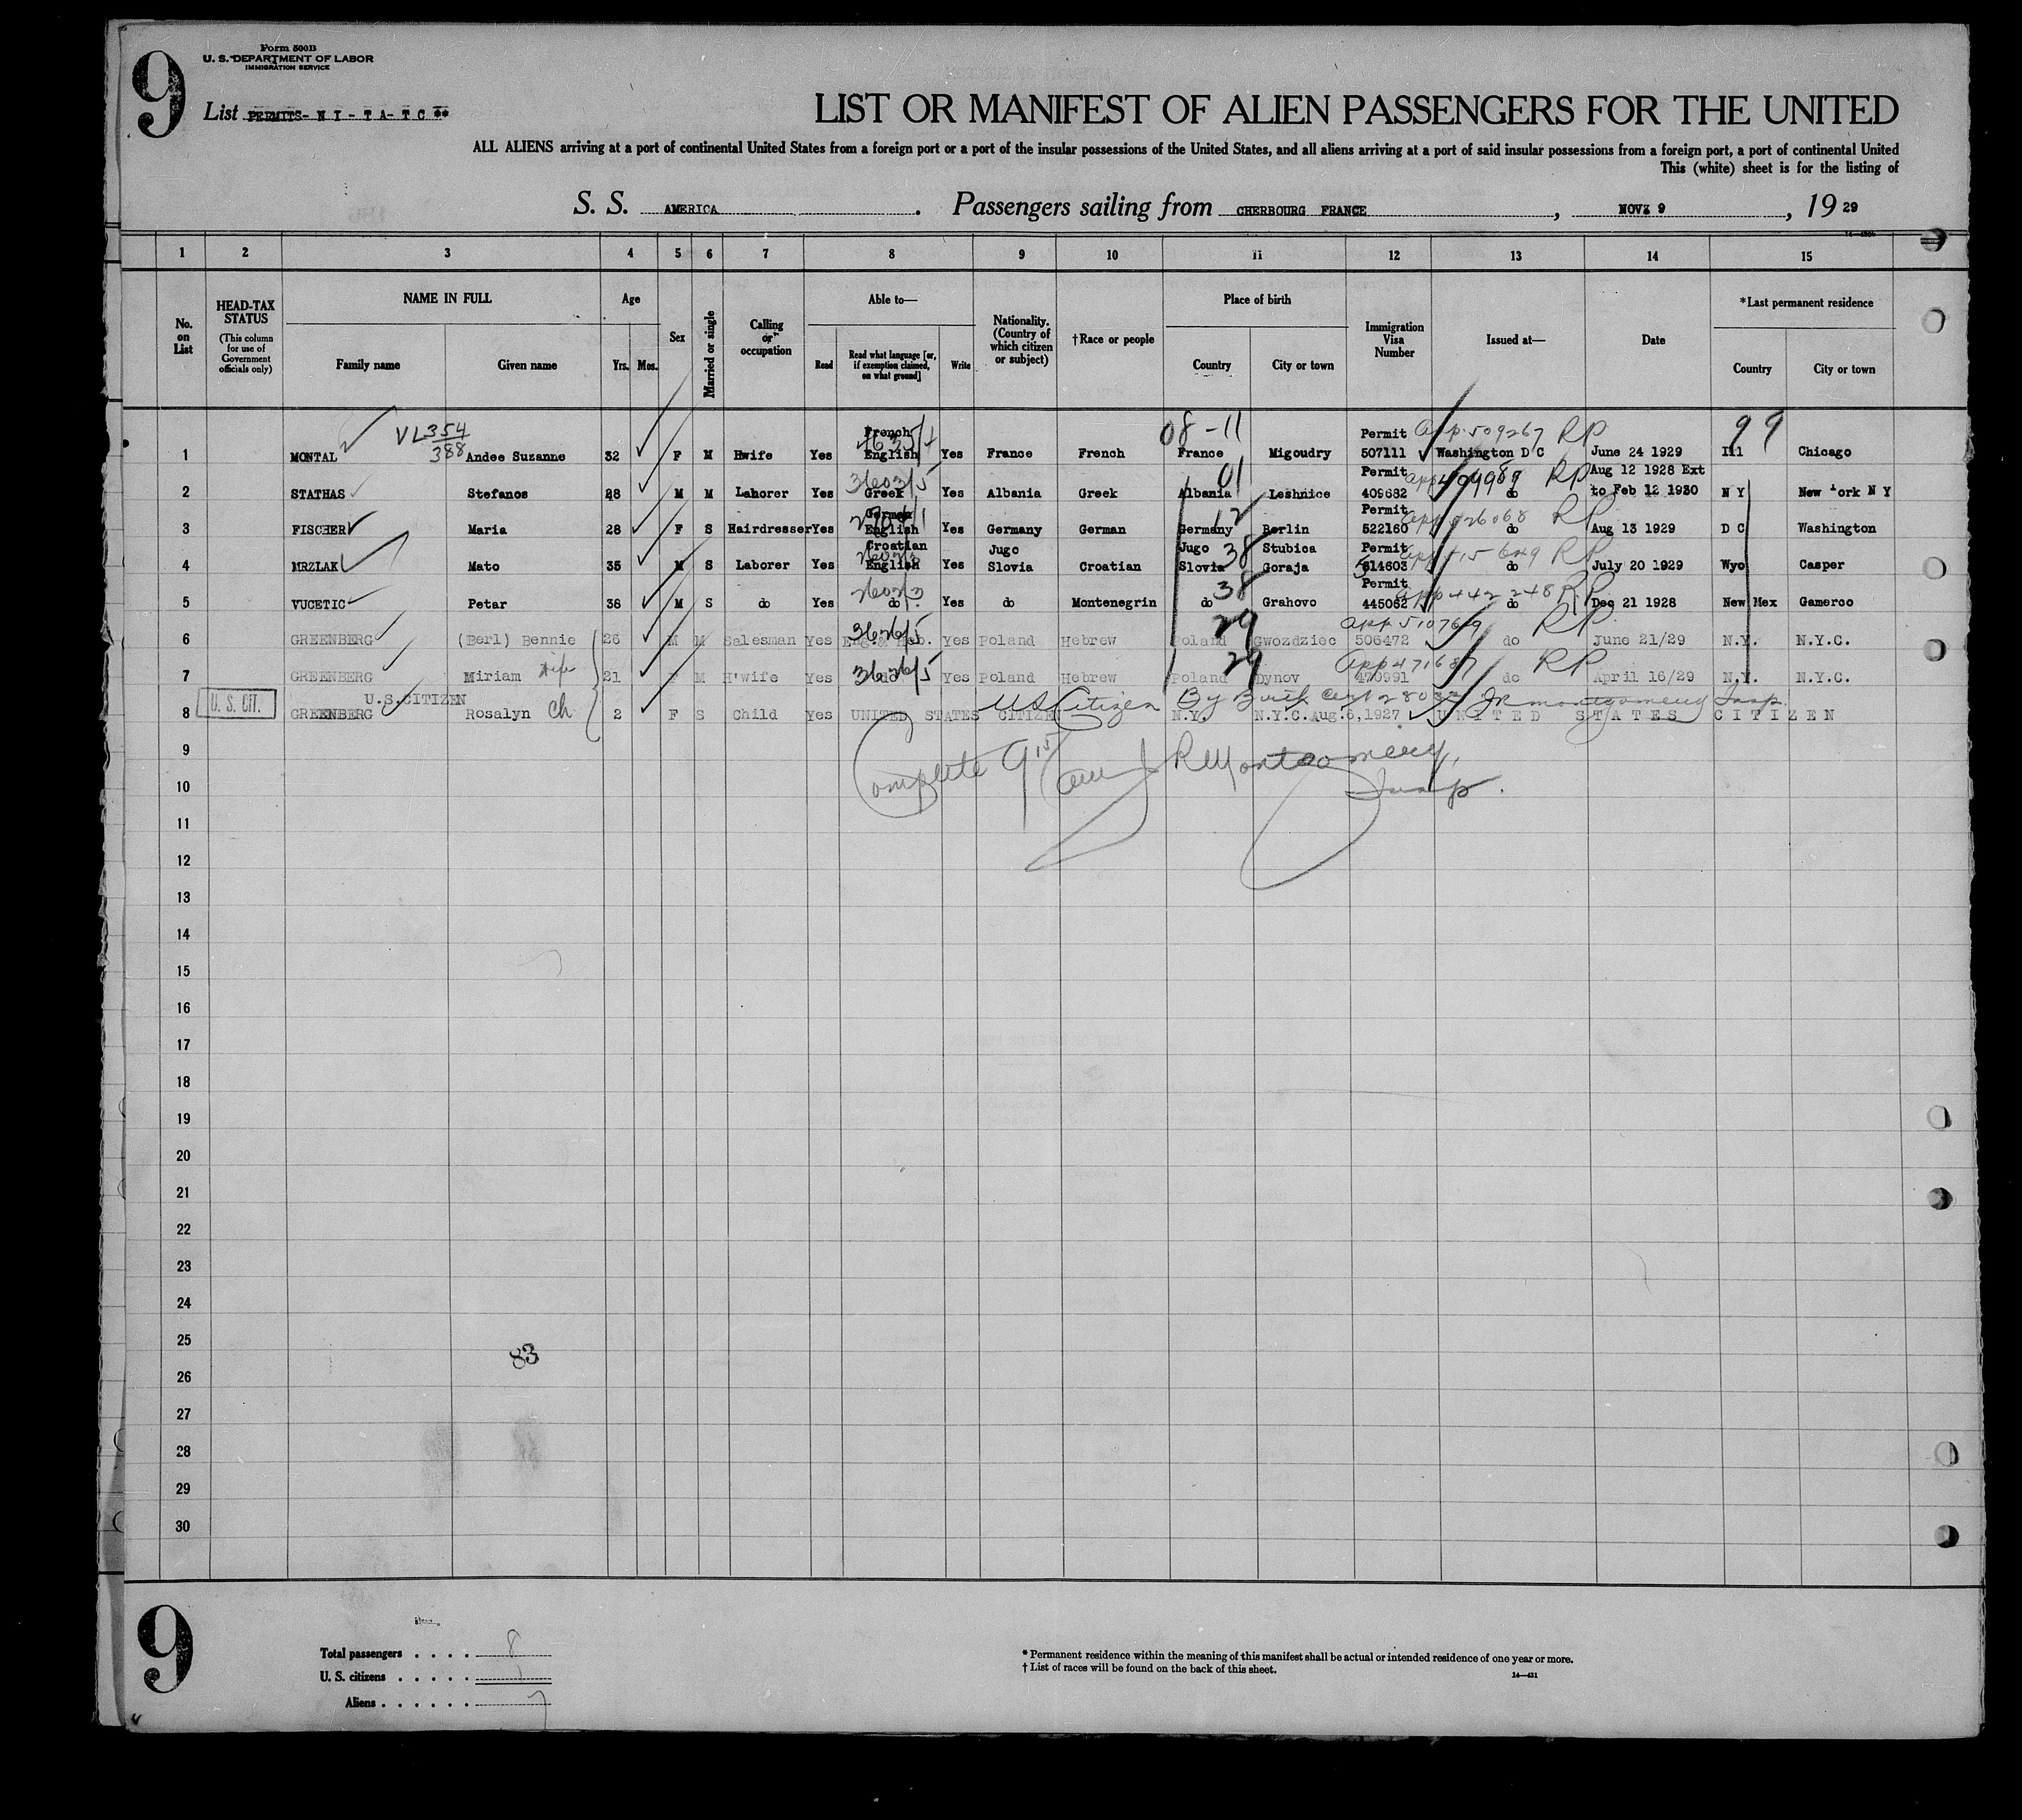 9
Form 500B
U. S. DEPARTMENT OF LABOR
IMMIGRATION SERVICE
List PERMITS- N I - T A- T C **
LIST OR MANIFEST OF ALIEN PASSENGERS FOR THE UNITED
ALL ALIENS arriving at a port of continental United States from a foreign port or a port of the insular possessions of the United States, and all aliens arriving at a port of said insular possessions from a foreign port, a port of continental United
This (white) sheet is for the listing of
S. S. AMERICA. Passengers sailing from CHERBOURG FRANCE, NOV 9, 19 29
1 2 3 4 5 6 7 8 9 10 11 12 13 14 15
No. on List
HEAD-TAX STATUS (This column for use of Government officials only)
NAME IN FULL Family name Given name
Age Yrs. Mos.
Sex
Married or single
Calling or occupation
Able to— Read Read what language [or, if exemption claimed, on what ground] Write
Nationality. (Country of which citizen or subject)
†Race or people
Place of birth Country City or town
Immigration Visa Number
Issued at—
Date
*Last permanent residence Country City or town
VL 354 08-11 99
388
1 MONTAL Andee Suzanne 32 F M Hwife Yes French English Yes France French France Migoudry Permit 507111 App. 509267 RP Washington D C June 24 1929 Ill Chicago
2 STATHAS Stefanos 28 M M Laborer Yes 3603/5 Greek Yes Albania Greek Albania 01 Leshnice Permit 409682 do RP Aug 12 1928 Ext to Feb 12 1930 N Y New York N Y
3 FISCHER Maria 28 F S Hairdresser Yes German English Yes Germany German Germany 12 Berlin Permit 522160 RP Aug 13 1929 D C Washington
4 MRZLAK Mato 35 M S Laborer Yes Croatian English Yes Jugo Slovia Croatian Jugo Slovia 38 Stubica Goraja Permit 514603 do RP July 20 1929 Wyo Casper
5 VUCETIC Petar 38 M S do Yes do Yes do Montenegrin do 38 Grahovo Permit 445062 App 442248 RP do Dec 21 1928 New Mex Gamerco
6 GREENBERG (Berl) Bennie 26 M M Salesman Yes 3626/5 Yes Poland Hebrew Poland 29 Gwozdziec 506472 do RP June 21/29 N.Y. N.Y.C.
7 GREENBERG Miriam Wife 21 F M H'wife Yes 3626/5 do Yes Poland Hebrew Poland 29 Dynov 470991 App 471687 do RP April 16/29 N.Y. N.Y.C.
U. S. CIT. U.S.CITIZEN US Citizen By Birth Cert JR Montgomery Insp.
8 GREENBERG Rosalyn Ch 2 F S Child Yes UNITED STATES CITIZEN N.Y. N.Y.C. Aug.6,1927 UNITED STATES CITIZEN
9
Complete 9 15 am JR Montgomery,
10
Insp.
11
12
13
14
15
16
17
18
19
20
21
22
23
24
25
83
26
27
28
29
30
9
Total passengers . . . . 8
U. S. citizens . . . . .
Aliens . . . . . . 7
* Permanent residence within the meaning of this manifest shall be actual or intended residence of one year or more.
† List of races will be found on the back of this sheet.
14—421